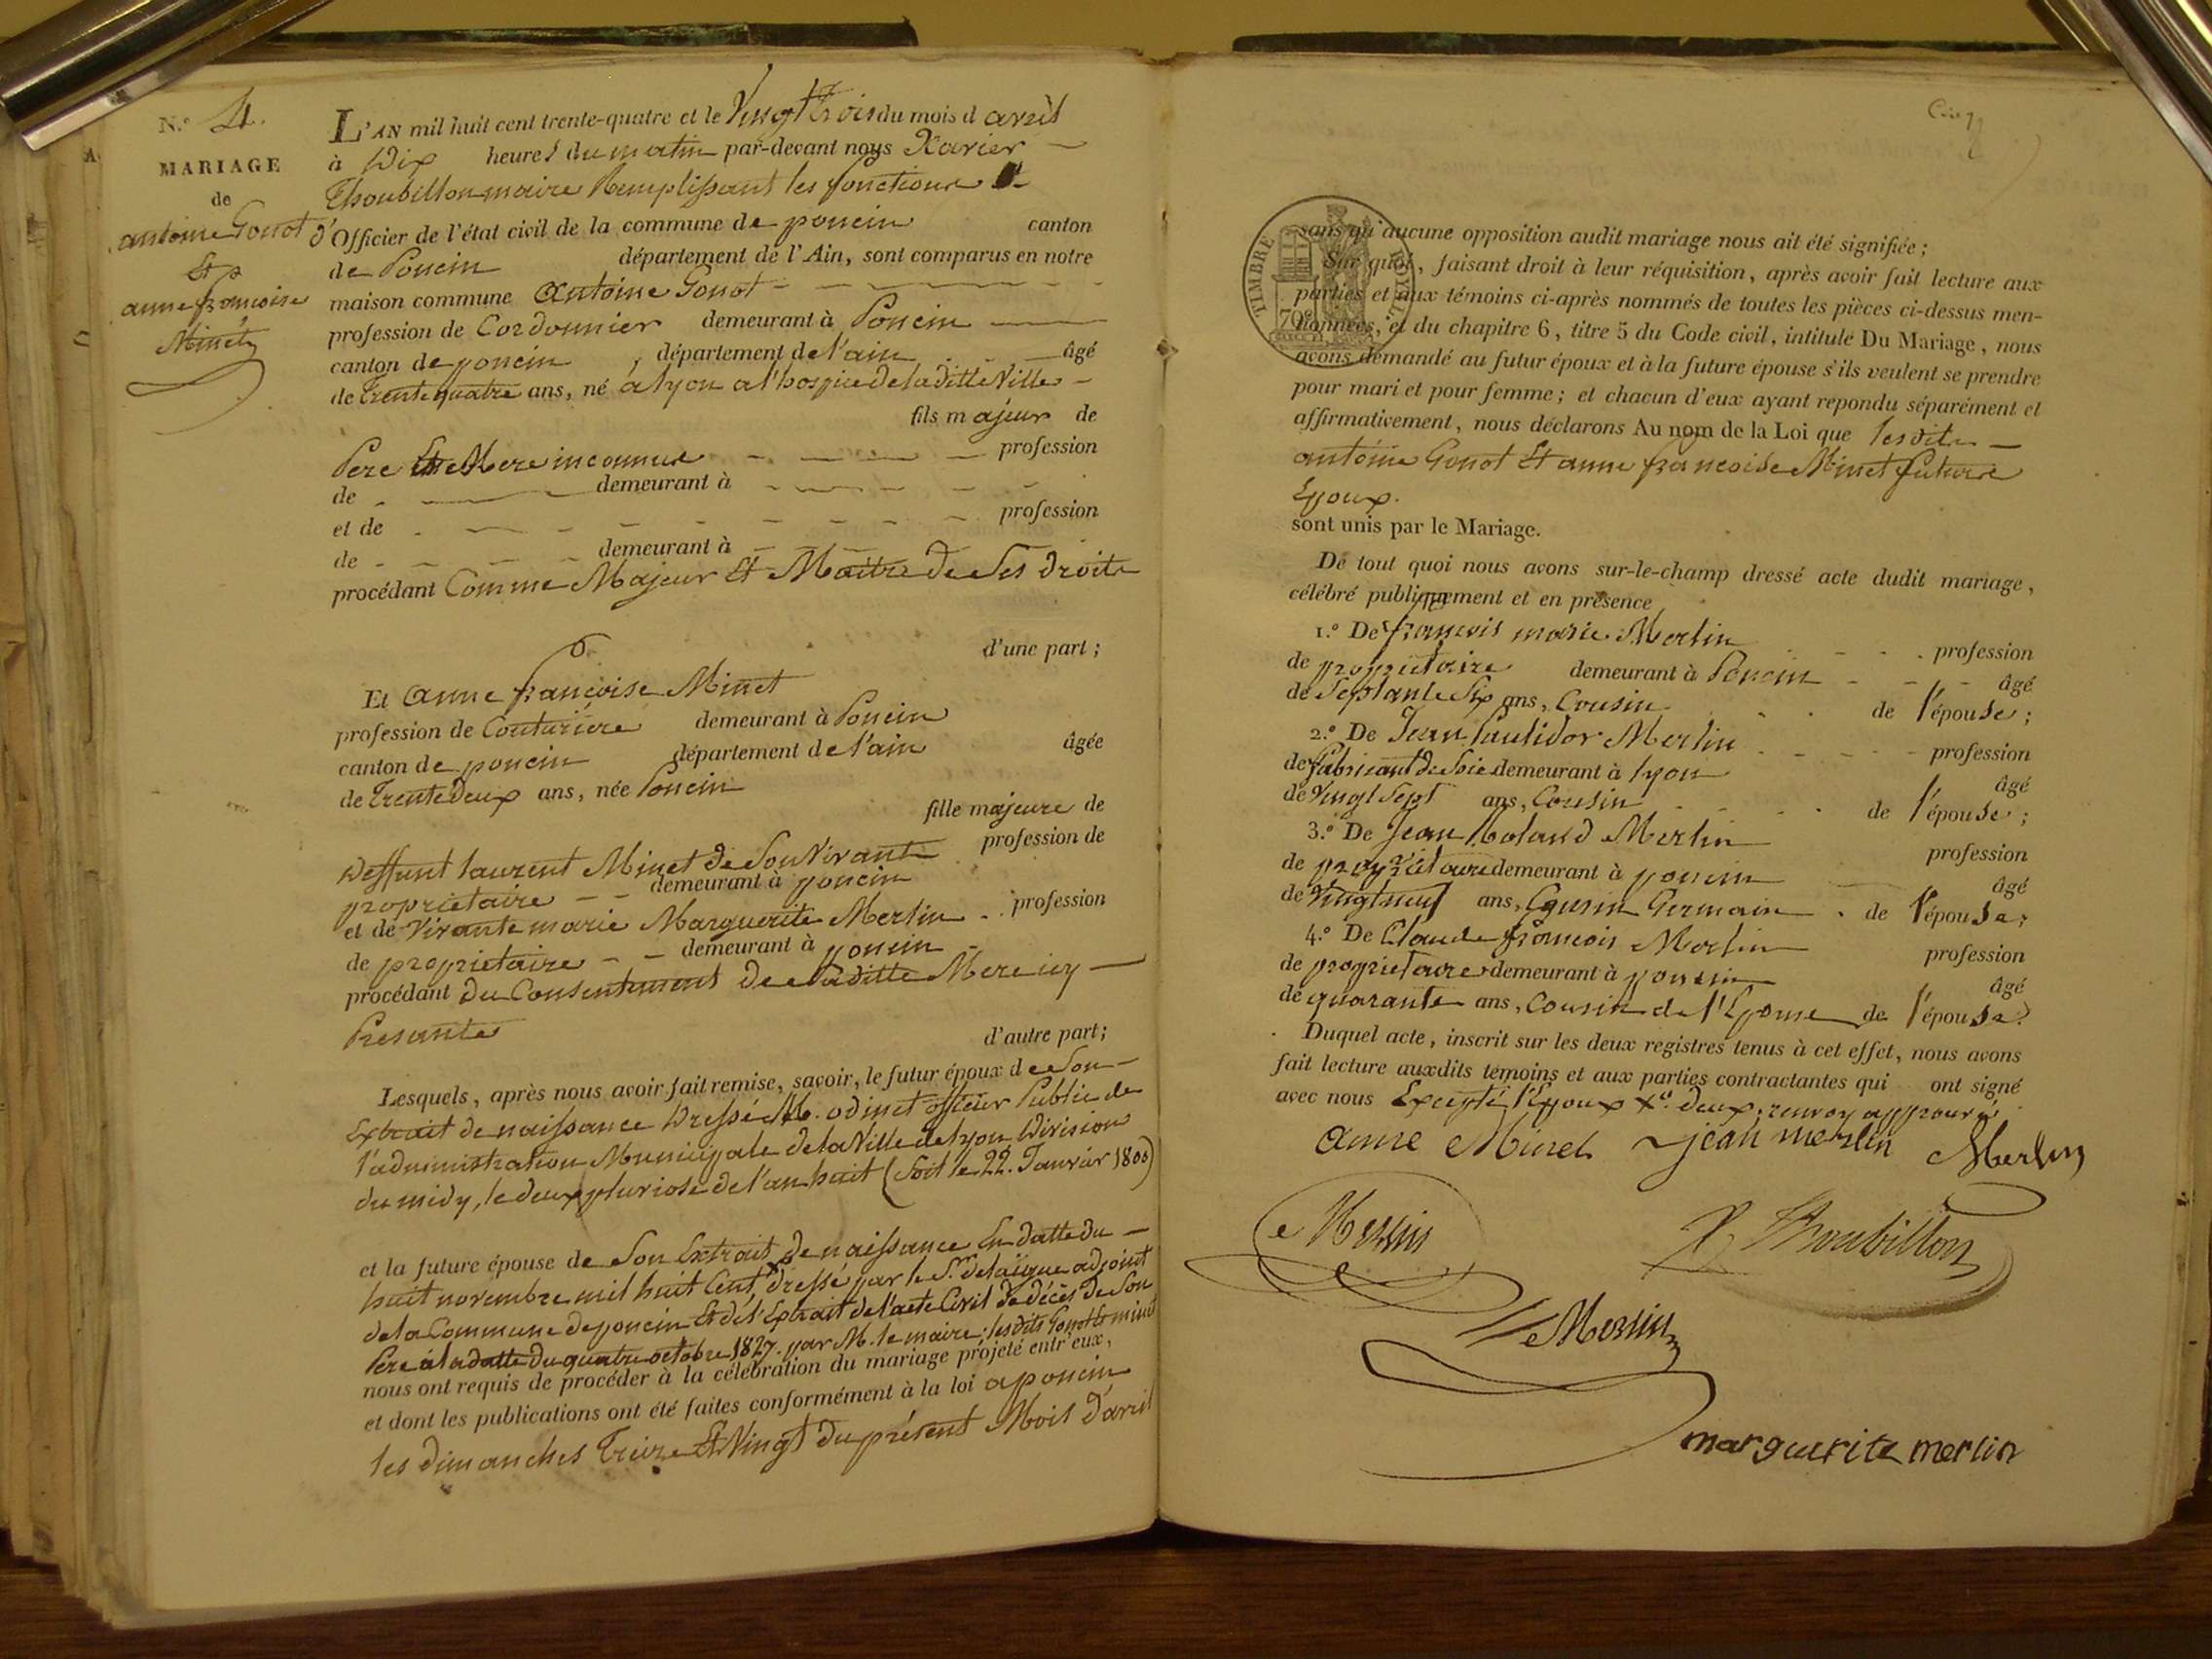 N.° 4.
MARIAGE
de
antoine Gonot
Et
anne françoise
Minet
L'AN mil huit cent trente-quatre et le Vingt trois du mois d avril
à Dix heures du matin par-devant nous Xavier
Thoubillon maire Remplissant les fonctions
d'Officier de l'état civil de la commune de poncin canton
de Poncin département de l'Ain, sont comparus en notre
maison commune Antoine Gonot
profession de Cordonnier demeurant à Poncin
canton de poncin, département de l'ain âgé
de Trente quatre ans, né à lyon a l'hospice de la ditte Ville
fils majeur de
Pere Et Mere inconnue profession
de demeurant à
et de profession
de demeurant à
procédant Comme Majeur Et Maitre de Ses droits
d'une part ;
Et Anne françoise Minet
profession de Couturiere demeurant à Poncin
canton de poncin département de l'ain âgée
de Trente Deux ans, née Poncin
fille majeure de
Deffunt laurent Minet de Son Vivant profession de
propriétaire demeurant à poncin
et de Vivante marie Marguerite Merlin profession
de propriétaire demeurant à poncin
procédant du Consentement de ladite Mere icy
Présante
d'autre part ;
Lesquels, après nous avoir fait remise, savoir, le futur époux de Son
Extrait de naissance Dressé M. odinet officier Public de
l'administration Municipale de la Ville de lyon Division
du midy, le deux pluviose de l'an huit (Soit le 22. Janvier 1800)
et la future épouse de Son Extrait de naissance En datte du
huit novembre mil huit Cent, dressé par le Sr. delaigue adjoint
de la Commune de poncin Et de l'Extrait de l'acte Civil de décès de Son
Pere à la datte du quatre octobre 1827. par M. le maire ; les dits Gonot Et minet
nous ont requis de procéder à la célébration du mariage projeté entr'eux,
et dont les publications ont été faites conformément à la loi a poncin
les dimanches Treize Et Vingt du présent Mois d'avril
Cinq
TIMBRE ROYAL
70c
sans qu'aucune opposition audit mariage nous ait été signifiée ;
Sur quoi, faisant droit à leur réquisition, après avoir fait lecture aux
parties et aux témoins ci-après nommés de toutes les pièces ci-dessus men-
tionnées, et du chapitre 6, titre 5 du Code civil, intitulé Du Mariage, nous
avons demandé au futur époux et à la future épouse s'ils veulent se prendre
pour mari et pour femme ; et chacun d'eux ayant repondu séparément et
affirmativement, nous déclarons Au nom de la Loi que lesdits
antoine Gonot Et anne françoise Minet future
Epoux.
sont unis par le Mariage.
De tout quoi nous avons sur-le-champ dressé acte dudit mariage,
célébré publiquement et en présence
1.° De françois marie Merlin profession
de propriétaire demeurant à Poncin âgé
de Septante Six ans, Cousin de l'épouse ;
2.° De Jean Merlin profession
de fabricant de Soie demeurant à lyon âgé
de Vingt Sept ans, Cousin de l'épouse ;
3.° De Jean Roland Merlin profession
de propriétaire demeurant à poncin âgé
de Vingt neuf ans, Cousin Germain de l'épouse ;
4.° De Claude françois Merlin profession
de propriétaire demeurant à poncin âgé
de quarante ans, Cousin de l'Epouse de l'épouse.
Duquel acte, inscrit sur les deux registres tenus à cet effet, nous avons
fait lecture auxdits témoins et aux parties contractantes qui ont signé
avec nous Excepté l'Epoux deux renvoy approuvé
anne Minet jean merlin Merlin
Merlin X Thoubillon
Merlin
marguerite merlin